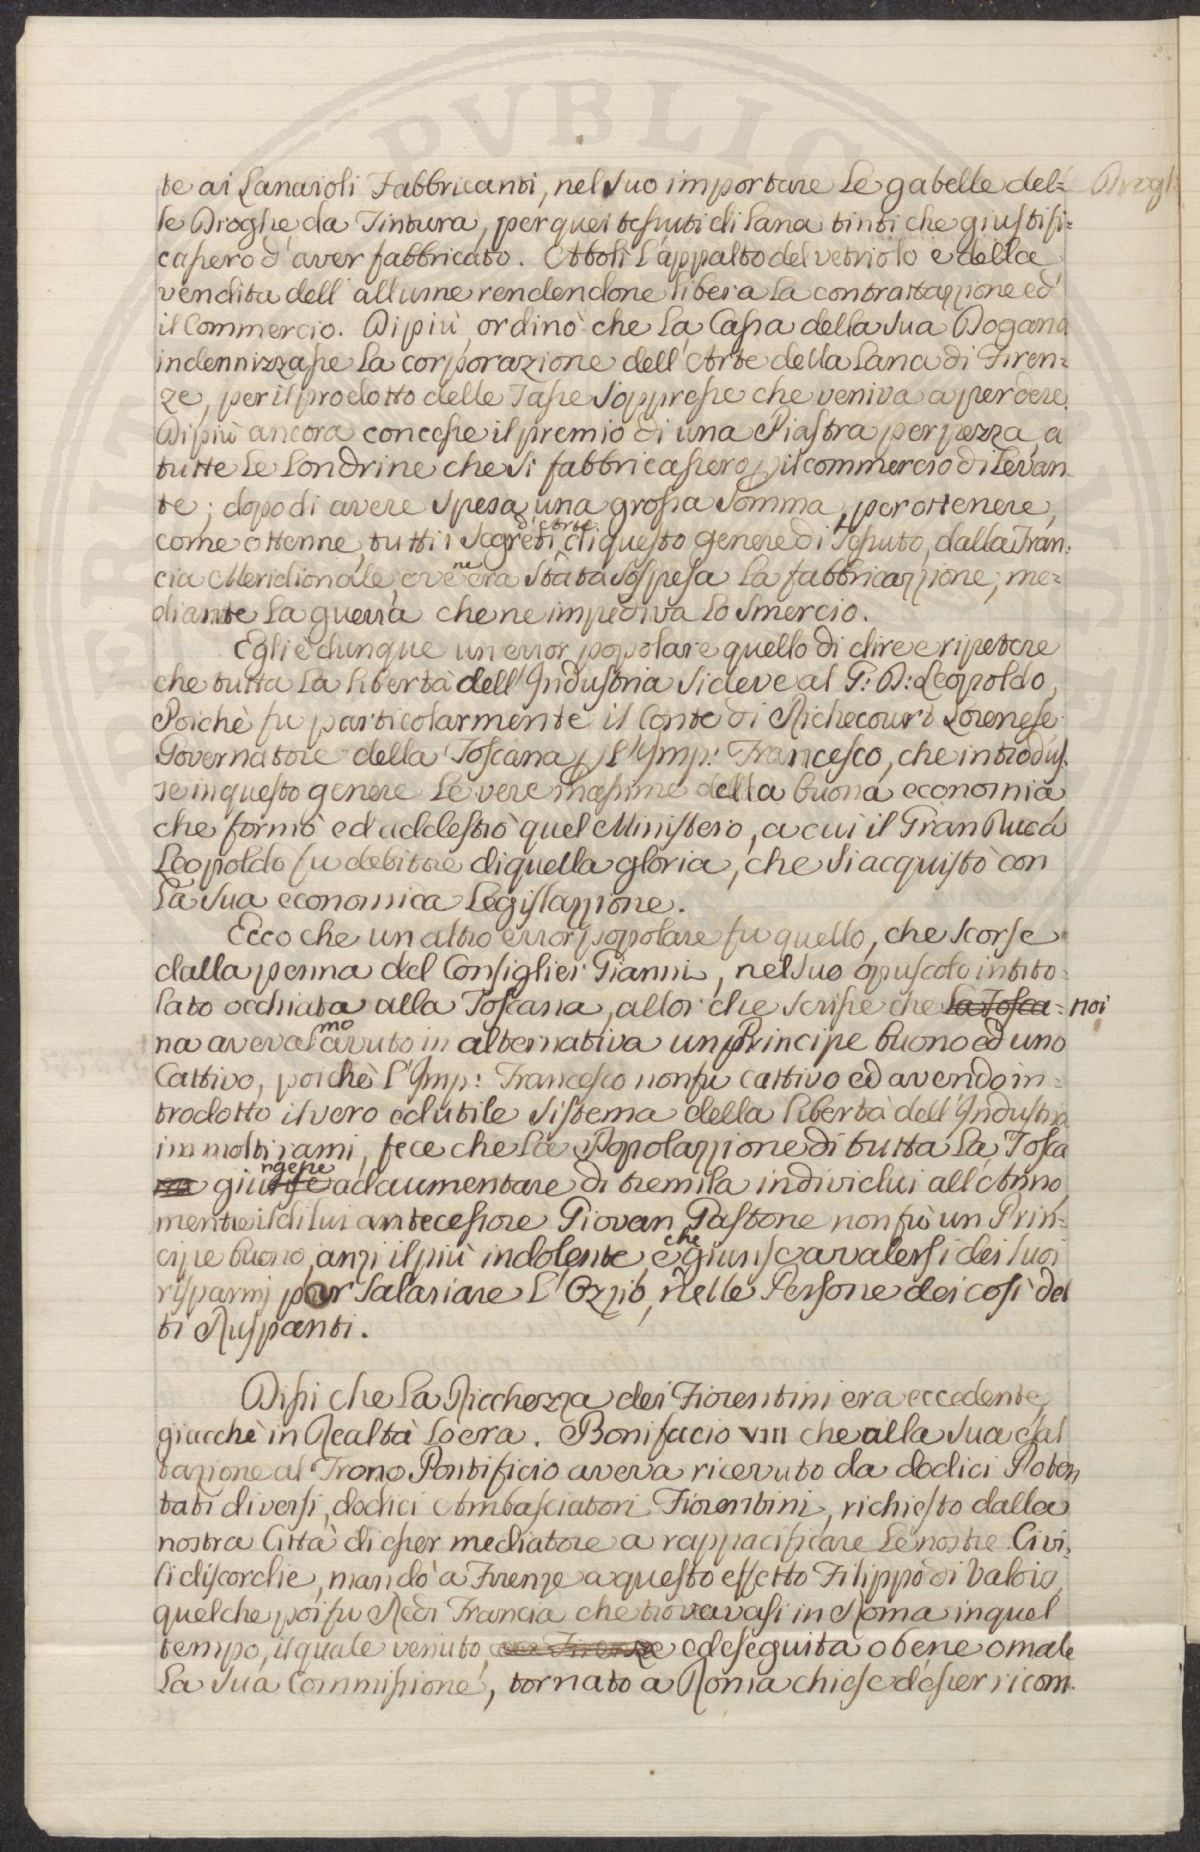 te ai Lanaioli Fabbricanti, nel suo importare le gabelle del=
le Droghe da Tintura, per quei tessuti di lana tinti che giustifi=
cassero d'aver fabbricato. Abolì l'appalto del vetriolo e della
vendita dell'allume rendendone libera la contrattazzione ed
il Commercio. Di più ordinò che la Cassa della sua Dogana
indennizzasse la corporazione dell'Arte della Lana di Firen=
ze, per il prodotto delle Tasse soppresse che veniva a perdere.
Di più ancora concesse il premio di una Piastra per pezza, a
tutte le Londrine che si fabbricassero p il commercio di Levan
te; dopo di avere spesa una grossa somma, per ottenere,
come ottenne, tutti i segreti d'arte di questo genere di Tessuto, dalla Fran=
cia Meridionale, ove ne era stata sospesa la fabbricazzione, me=
diante la guerra che ne impediva lo smercio.
Egli è dunque un error popolare quello di dire e ripetere
che tutta la libertà dell'Industria si deve al G: D: Leopoldo,
Poichè fu particolarmente il Conte di Richecourt Lorenese
Governatore della Toscana p l'Imp: Francesco, che introdus=
se in questo genere le vere massime della buona economia
che formò ed addestrò quel Ministero, a cui il Gran Duca
Leopoldo fu debitore di quella gloria, che si acquistò con
la sua economica Legislazzione.
Ecco che un altro error popolare fu quello, che scorse
dalla penna del Consiglier Gianni, nel suo opuscolo intito=
lato occhiata alla Toscana, allor che scrisse che la Tosca= noi
na aveva mo avuto in alternativa un Principe buono ed uno
Cattivo, poichè l'Imp: Francesco non fu cattivo ed avendo in=
trodotto il vero ed utile sistema della libertà dell'Industria
im molti rami, fece che la Popolazzione di tutta la Tosca
na giunse ngesse ad aumentare di tremila individui all'Anno,
mentre il di lui antecessore Giovan Gastone non fù un Prin=
cipe buono, anzi il più indolente, e che giunse a valersi dei suoi
risparmj per salariare l'Ozzio, nelle Persone dei così det
ti Ruspanti.
Dissi che la Ricchezza dei Fiorentini era eccedente,
giacchè in Realtà lo era. Bonifacio VIII che alla sua esal
tazione al Trono Pontificio aveva ricevuto da dodici Poten
tati diversi, dodici Ambasciatori Fiorentini, richiesto dalla
nostra Città di esser mediatore a rappacificare le nostre Civi=
li discordie, mandò a Firenze a questo effetto Filippo di Valois,
quel che poi fu Re di Francia che trovavasi in Roma in quel
tempo, il quale venuto, a Firenze ed eseguita o bene o male
la sua Commissione, tornato a Roma chiese d'esser ricom=
Drogh